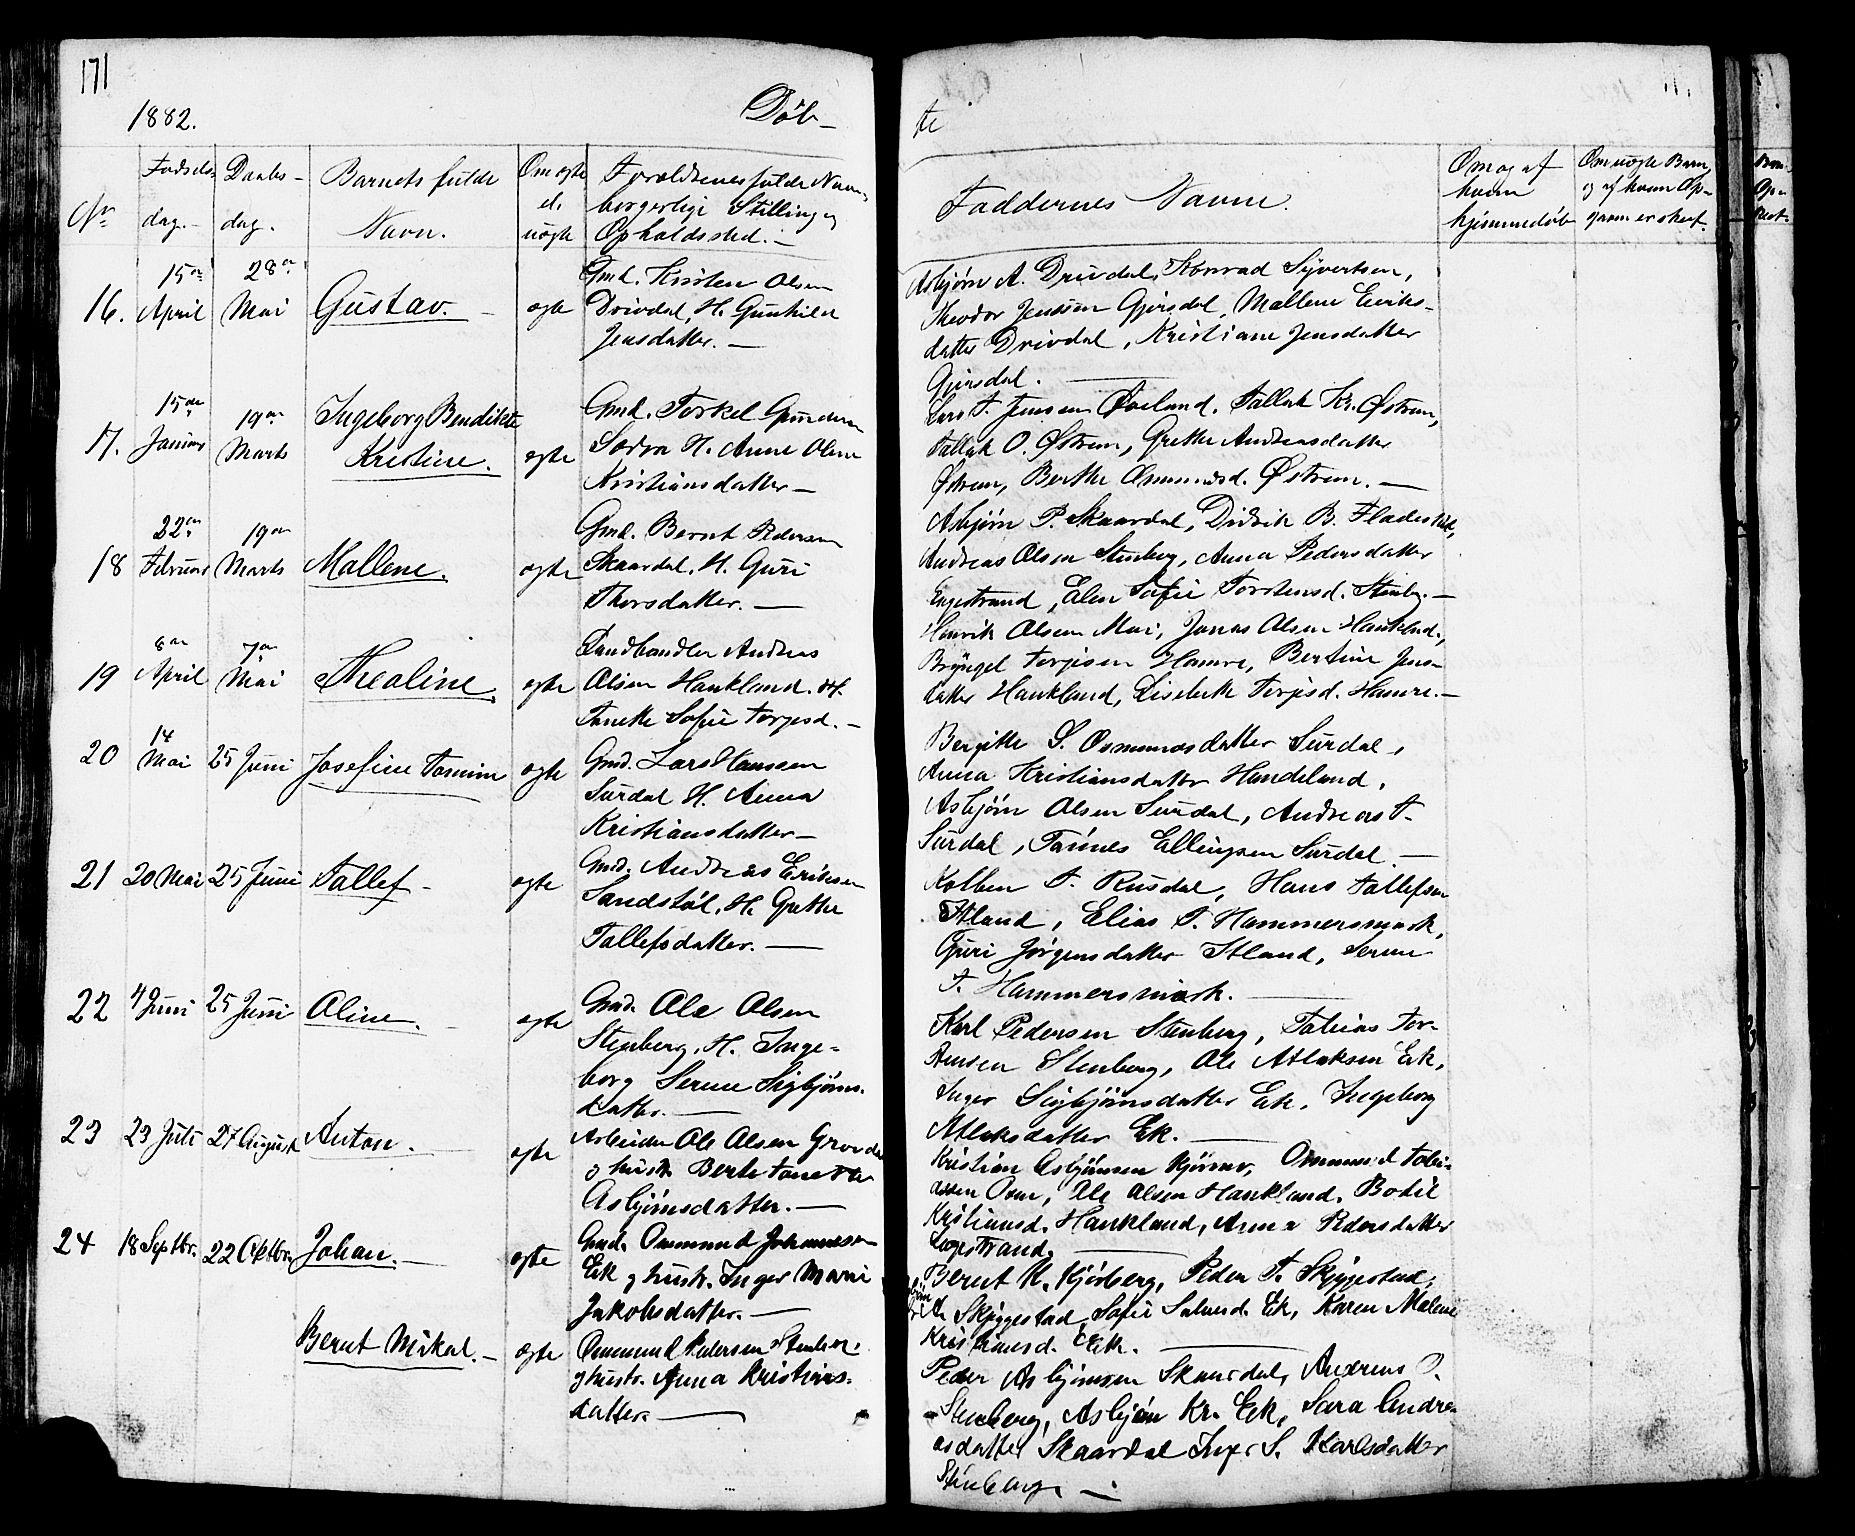 171
1882.
Døb-
te
No
Fødsels-
dag.-
Daabs-
dag.
Barnets fulde
Navn.
Om ægte
el.
uægte
Forældrenes fulde Navn,
borgerlige Stilling og
Opholdssted.-
Faddernes Navne.
Om og af
hvem
hjemmedøbt
Om uægte Barn,
og af hvem Op-
gaven er skeet.
16.
15de
April
28de
Mai
Gustav.
ægte
Gmd. Kristen Olsen
Drivdal, H. Gunhild
Jensdatter. -
Asbjørn A. Drivdal, Konrad Syvertsen,
Theodor Jenssen Gjersdal, Mallene Eeriks-
datter Drivdal, Kristiane Jensdatter
Gjersdal.
17.
15de
Januar
19de
Marts
Ingeborg Bendikte
Kristine.
ægte
Gmd. Torkel Gundersen
H. Anne Oline
Kristiansdatter -
Lars T. Jenssen Øveland, Tallak Kr. Østrem,
Tallak O. Østrem, Grethe Andreasdatter
Østrem, Berthe Osmundsd. Østrem. -
18
22de
Februar
19de
Marts
Mallene.
ægte
Gmd. Bernt Pedersen
Skaardal, H. Guri
Thorsdatter. -
Asbjørn P. Skaardal, Didrik B.
Andreas Olsen Stenberg, Anna Pedersdatter
Egestrand, Elen Sofie Torstensd. Stenbg. -
19
8de
April
7de
Mai
Thealine.
ægte
Landhandler Andreas
Olsen Haukland. H.
Tanette Sofie Torjesd. -
Henrik Olsen Moi, Jonas Olsen Haukland,
Bryngel Torjesen Hamre, Bertine Jens-
datter Haukland, Lisebeth Torjesd. Hamre. -
20
14
Mai
25 Juni
Josefine Tomine
ægte
Gmd. Lars Hanssen
Surdal H. Anna
Kristiansdatter -
Bergitte S. Osmundsdatter Surdal,
Anna Kristiansdatter Handeland,
Asbjørn Olsen Surdal, Andreas T.
Surdal, Tønnes Ellingsen Surdal. -
21
20 Mai
25 Juni
Tallef -
ægte
Gmd. Andreas Eriksen
Sandstøl, H. Grethe
Tallefsdatter. -
Kolben T. Rusdal, Hans Tallefsen
Itland, Elias T. Hammersmark,
Guri Jørgensdatter Itland, Serine
T. Hammersmark.
22
4 Juni
25 Juni
Oline.
ægte
Gmd. Ole Olsen
Stenberg, H. Inge-
borg Serine Sigbjørns-
datter. -
Karl Pedersen Stenberg, Tobias Tor-
stensen Stenberg, Ole Atlaksen Eek,
Inger Sigbjørnsdatter Eek, Ingeborg
Atlaksdatter Ek.
23
23 Juli
27 August
Anton.
ægte
Arbeider Ole Olsen
og hustr. Berte Tanette
Asbjørnsdatter. -
Kristian Asbjørnsen Osmund Tobi-
assen Osen, Ole Olsen Haukland, Bodil
Kristiansd. Haukland, Anna Pedersdatter
Egestrand.
24
18 Septbr.
22 Oktbr.
Johan. -
ægte
Gmd. Osmund Johannessen
Eek og hustr. Inger Marie
Jakobsdatter. -
Bernt K. Kjørberg, Peder T. Skjeggestad,
Skjeggestad, Sofie Salvesd. Ek, Karen Malene
Kristiansd. Eek.
Bernt Mikal. -
ægte
Osmund Pedersen Stenberg
og hustr. Anna Kristians-
datter. -
Peder Asbjørnsen Skaardal, Andreas O.
Stenberg, Asbjørn Kr. Eek, Sara Andre-
asdatter Skaardal Inger S. Karlsdatter
Stenberg. -